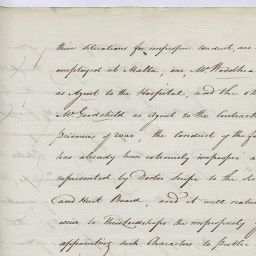 their situations for improper conduct, are
employed at Malta, one, Mr. Woodhea
as Agent to the Hospital, and the o
Mr. Goodchild as Agent to the Contract
prisoners of war, the Conduct of the fo
has already been extremely improper a
represented by Doctor Snipe to the Si
and Hurt Board, and it will natu
occur to Their Lordships the impropriety of
appointing such Characters to Public